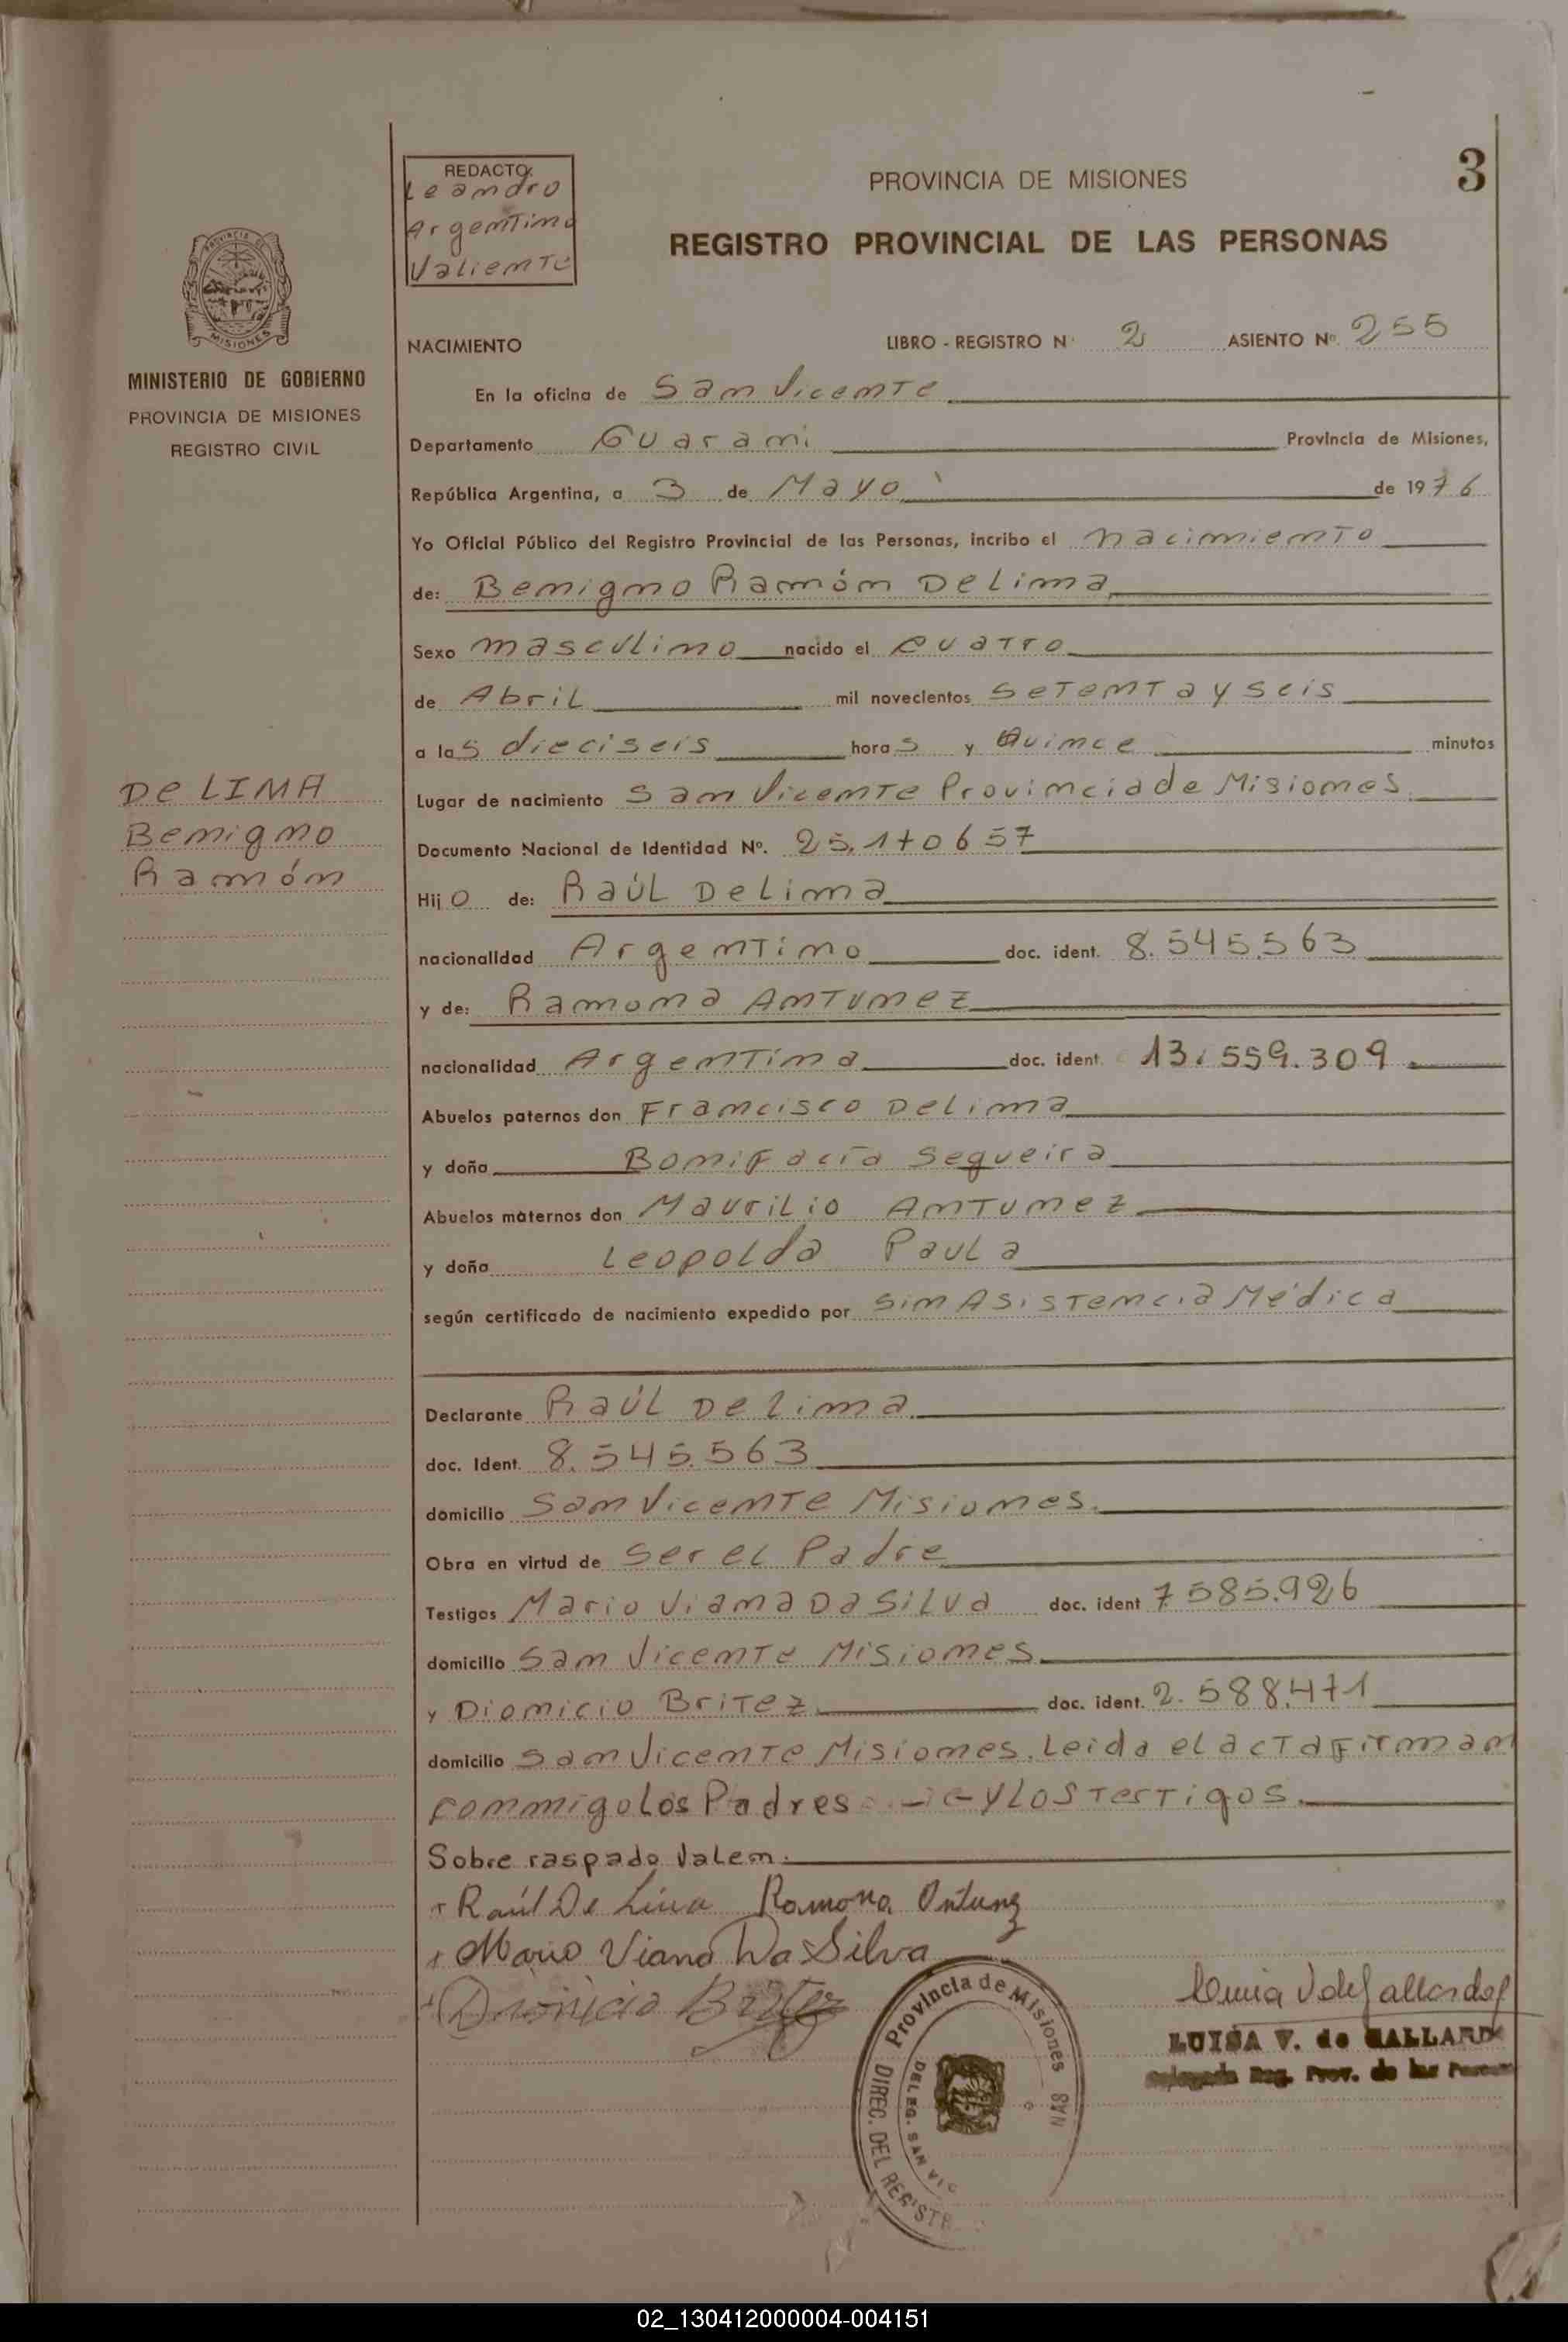 REDACTO:
Leandro
Argentino
Valiente
PROVINCIA DE MISIONES
3
REGISTRO PROVINCIAL DE LAS PERSONAS
PROVINCIA DE
MISIONES
MINISTERIO DE GOBIERNO
PROVINCIA DE MISIONES
REGISTRO CIVIL
NACIMIENTO LIBRO - REGISTRO N° 2 ASIENTO Nº. 255
En la oficina de San Vicente
Departamento Guarani Provincia de Misiones,
República Argentina, a 3 de Mayo de 1976
Yo Oficial Público del Registro Provincial de las Personas, incribo el nacimiento
de: Benigno Ramón De Lima
Sexo masculino nacido el cuatro
de Abril mil novecientos setenta y seis
a las dieciseis horas y Quince minutos
Lugar de nacimiento San Vicente Provincia de Misiones
De LIMA
Benigno
Ramón
Documento Nacional de Identidad Nº. 25.170657
Hijo de: RAÚL De Lima
nacionalidad Argentino doc. ident. 8.545.563
y de: Ramona ANTUNEZ
nacionalidad Argentina doc. ident. 13.559.309
Abuelos paternos don Francisco De Lima
y doña Bonifacia Segueira
Abuelos maternos don Maurilio ANTUNEZ
y doña Leopolda Paula
según certificado de nacimiento expedido por Sin Asistencia Médica
Declarante RAÚL De Lima
doc. Ident. 8.545.563
domicilio San Vicente Misiones.
Obra en virtud de ser el Padre
Testigos Mario Viana Da Silva doc. ident 7585.926
domicilio San Vicente Misiones
y Dionicio Britez doc. ident. 2.588.471
domicilio San Vicente Misiones. Leida el acta firman
conmigo los Padres y los Tertigos.
Sobre raspado Valen.
Raúl De Lima Ramona Ontunz
Mario Viana Da Silva
Dionicio Britez
Provincia de Misiones
DIREC. DEL REGISTR
DELEG. SAN VIC
LUISA V. de GALLARDO
Delegada Reg. Prov. de las Personas
02_130412000004-004151